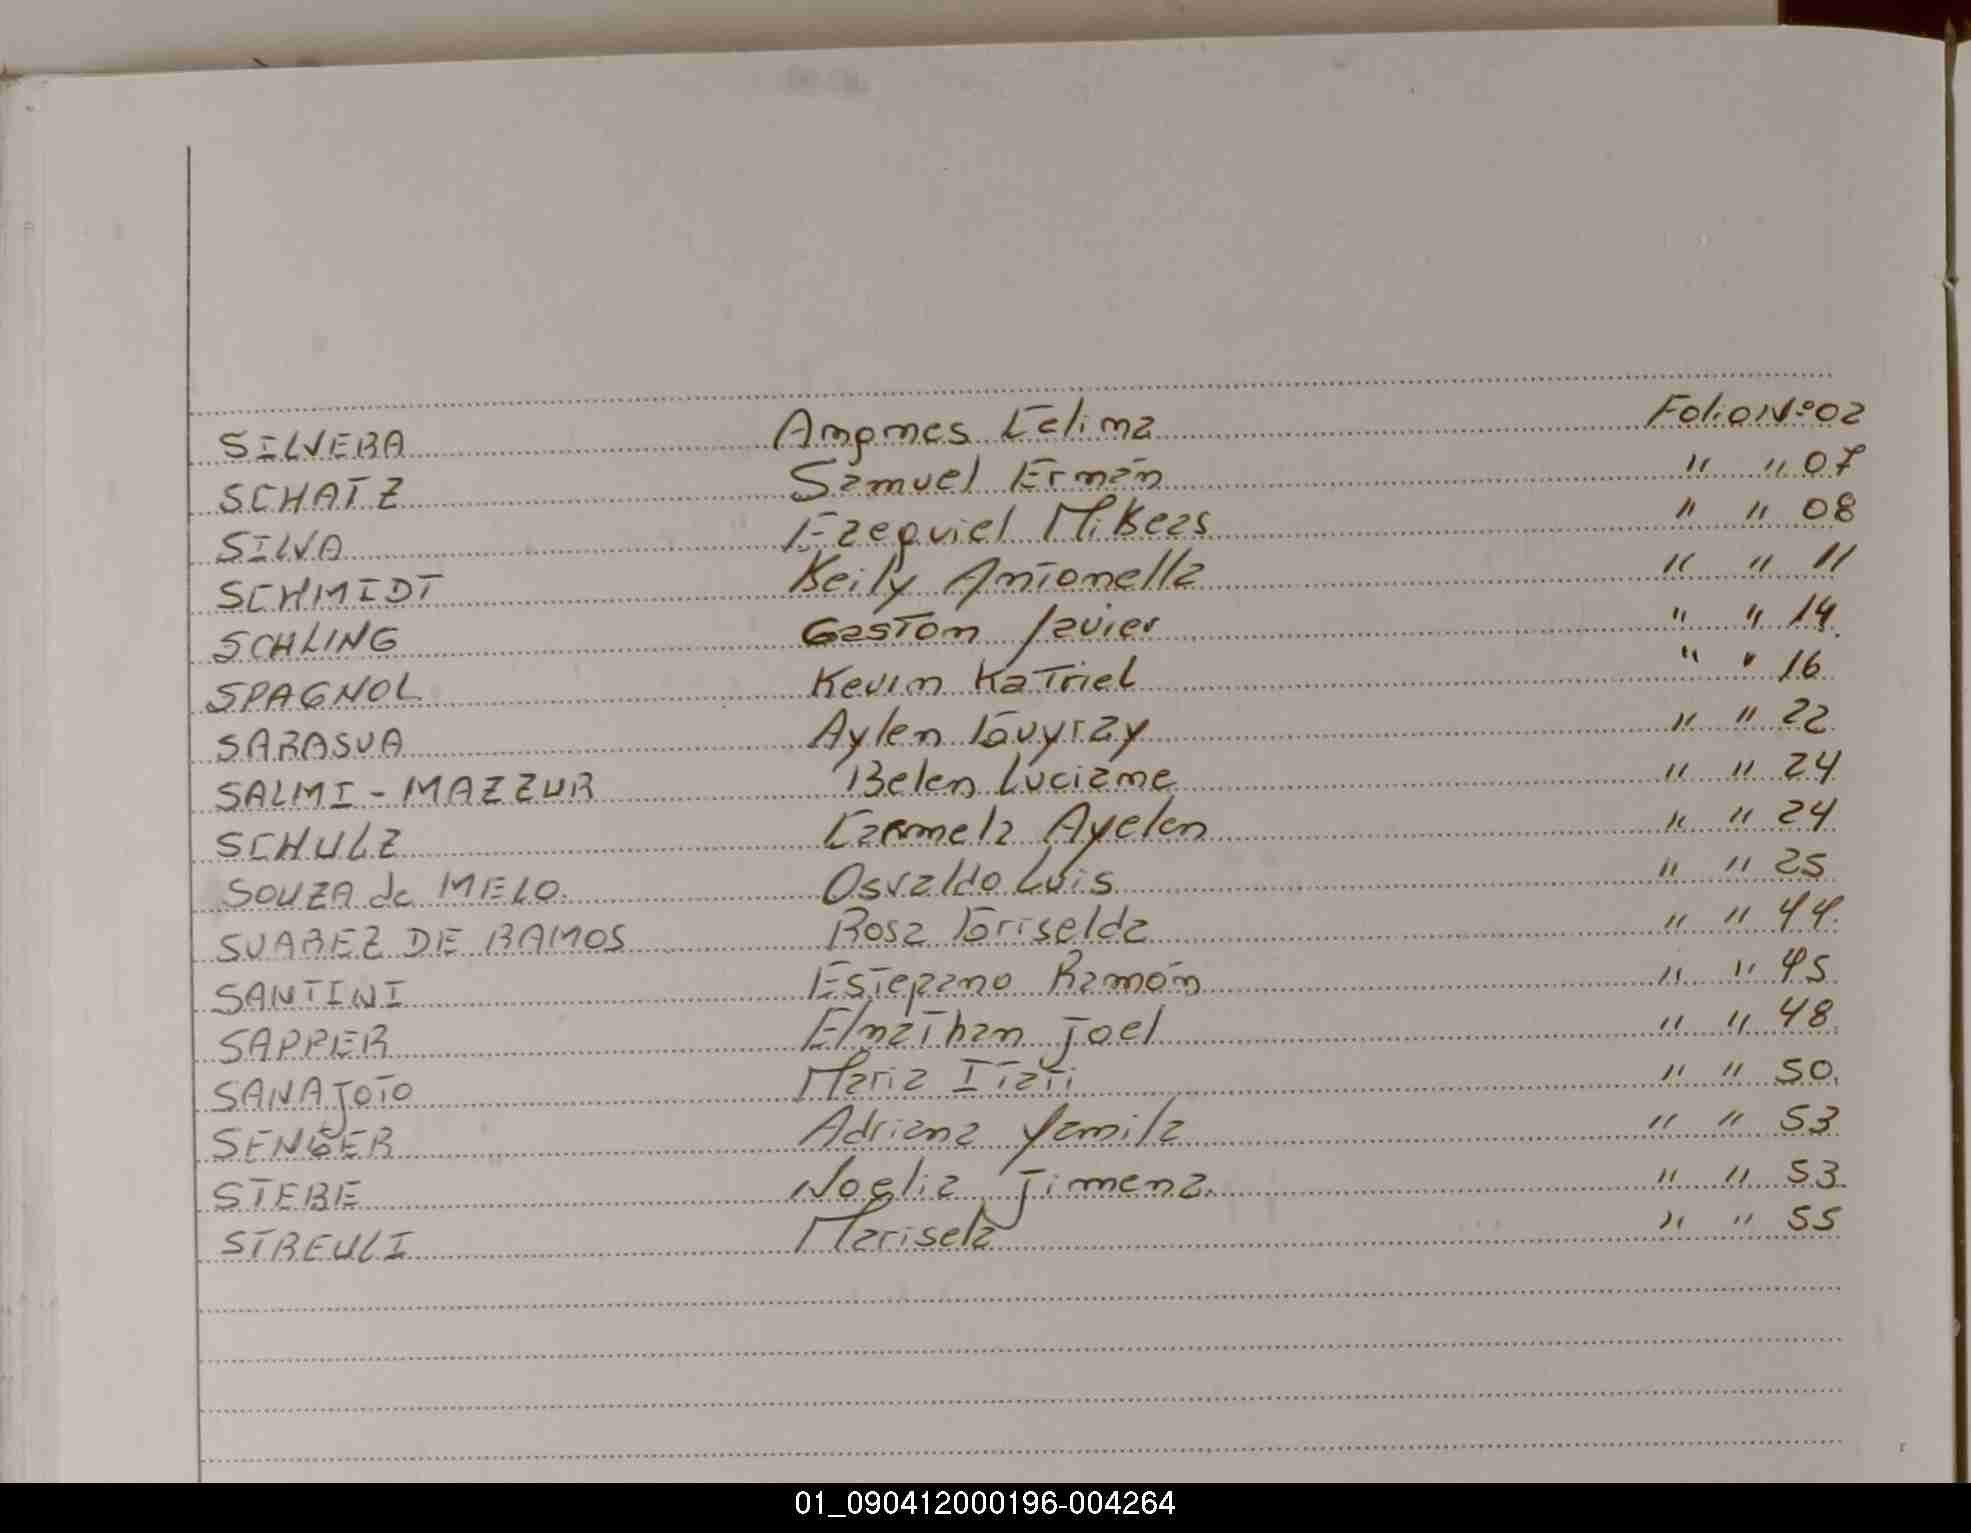 SILVERA Celina Folio Nº 02
SCHATZ Samuel Ermán " " 07
SILVA Ezequiel Mikeas " " 08
SCHMIDT Keily Antonella " " 11
SCHLING Gaston Javier " " 14
SPAGNOL Kevin Katriel " " 16
SARASUA Aylen Guyray " " 22
SALMI - MAZZUR Belen Luciane " " 24
SCHULZ Carmela Ayelen " " 24
SOUZA de MELO Osvaldo Luis " " 25
SUAREZ DE RAMOS Rosa Griselda " " 44
SANTINI Estefano Ramón " " 45
SAPPER Elnathan Joel " " 48
SANAJOTO Maria Itati " " 50
SENGER Adriana Yamila " " 53
STEBE Noelia Jimena " " 53
STREULI Marisela " " 55
01_090412000196-004264